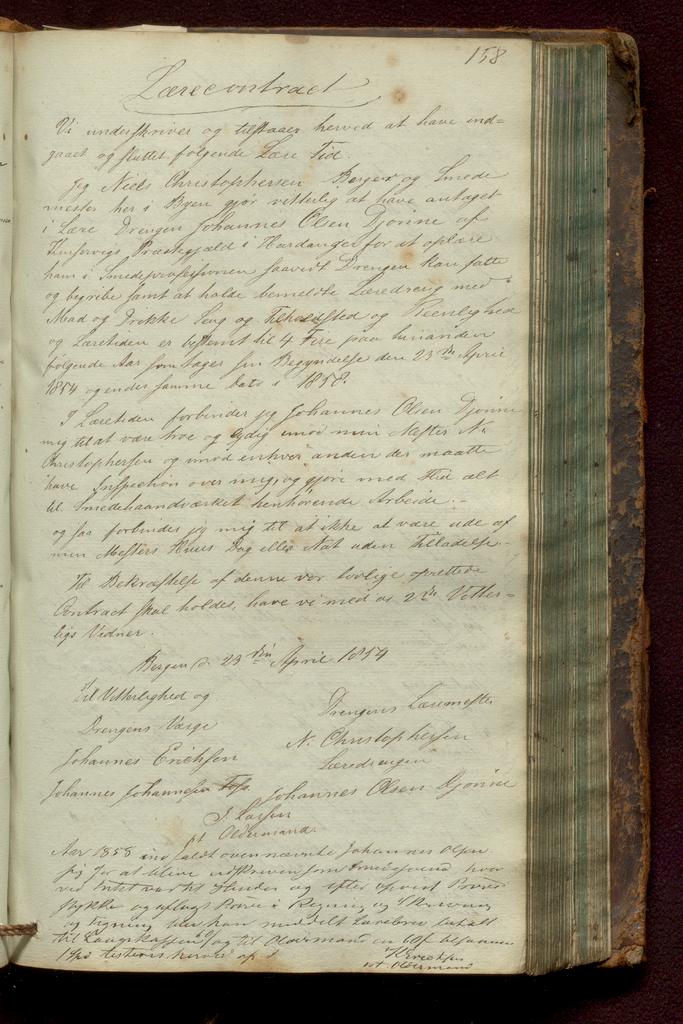 158
Lærecontract
Vi underskriver og tilstaaer herved at have ind=
gaaet og sluttet følgende Lære Tid.
Jeg Niels Christophersen Borger og Smede
mester her i Byen gjør vitterlig at have antaget
i Lære Drengen Johannes Olsen Djønne af
Kinservigs Præstegjæld i Hardanger for at oplære
ham i Smedeprofessionen saavidt Drengen kan fatte
og begribe samt at holde bemeldte Læredreng med
Mad og Drikke Seng og Tilholdssted og Reenlighed
og Læretiden er bestemt til 4 Fire paa hinanden
følgende Aar som tager sin Begyndelse den 23de April
1854 og ender samme Dato i 1858.
I Læretiden forbinder jeg Johannes Olsen Djønne
mig til at være troe og lydig imod min Mester N.
Christophersen og imod enhver anden der maatte
have Inspection over mig, og gjøre med Flid alt
til Smedehaandværket henhørende Arbeide.-
og saa forbinder jeg mig til at ikke at være ude af
min Mesters Huus Dag eller Nat uden Tilladelse.-
Til Bekræftelse af denne vor lovlige oprettede
Contract skal holdes, have vi med os 2de Vitter-
ligs Vidner.
Bergen d. 23 April 1854
Til Vitterlighed og
Drengens Værge
Johannes Erichsen
Johannes Johannesen
Drengens Læremester
N. Christophersen
Læredrengen
Johannes Olsen Djønne
J. Larsen
Oldermand
Aar 1858 indfaldt ovennævnte Johannes Olsen
sig for at blive udskreven som Smedesvend hvor
ved Intet var til Hinder og efter
stykke og aflagt Prøve i Regning og Skrivning
og Tegning blev han meddelt Lærebrev betalt
til Laugskassen og til Oldermand en
Oldermand